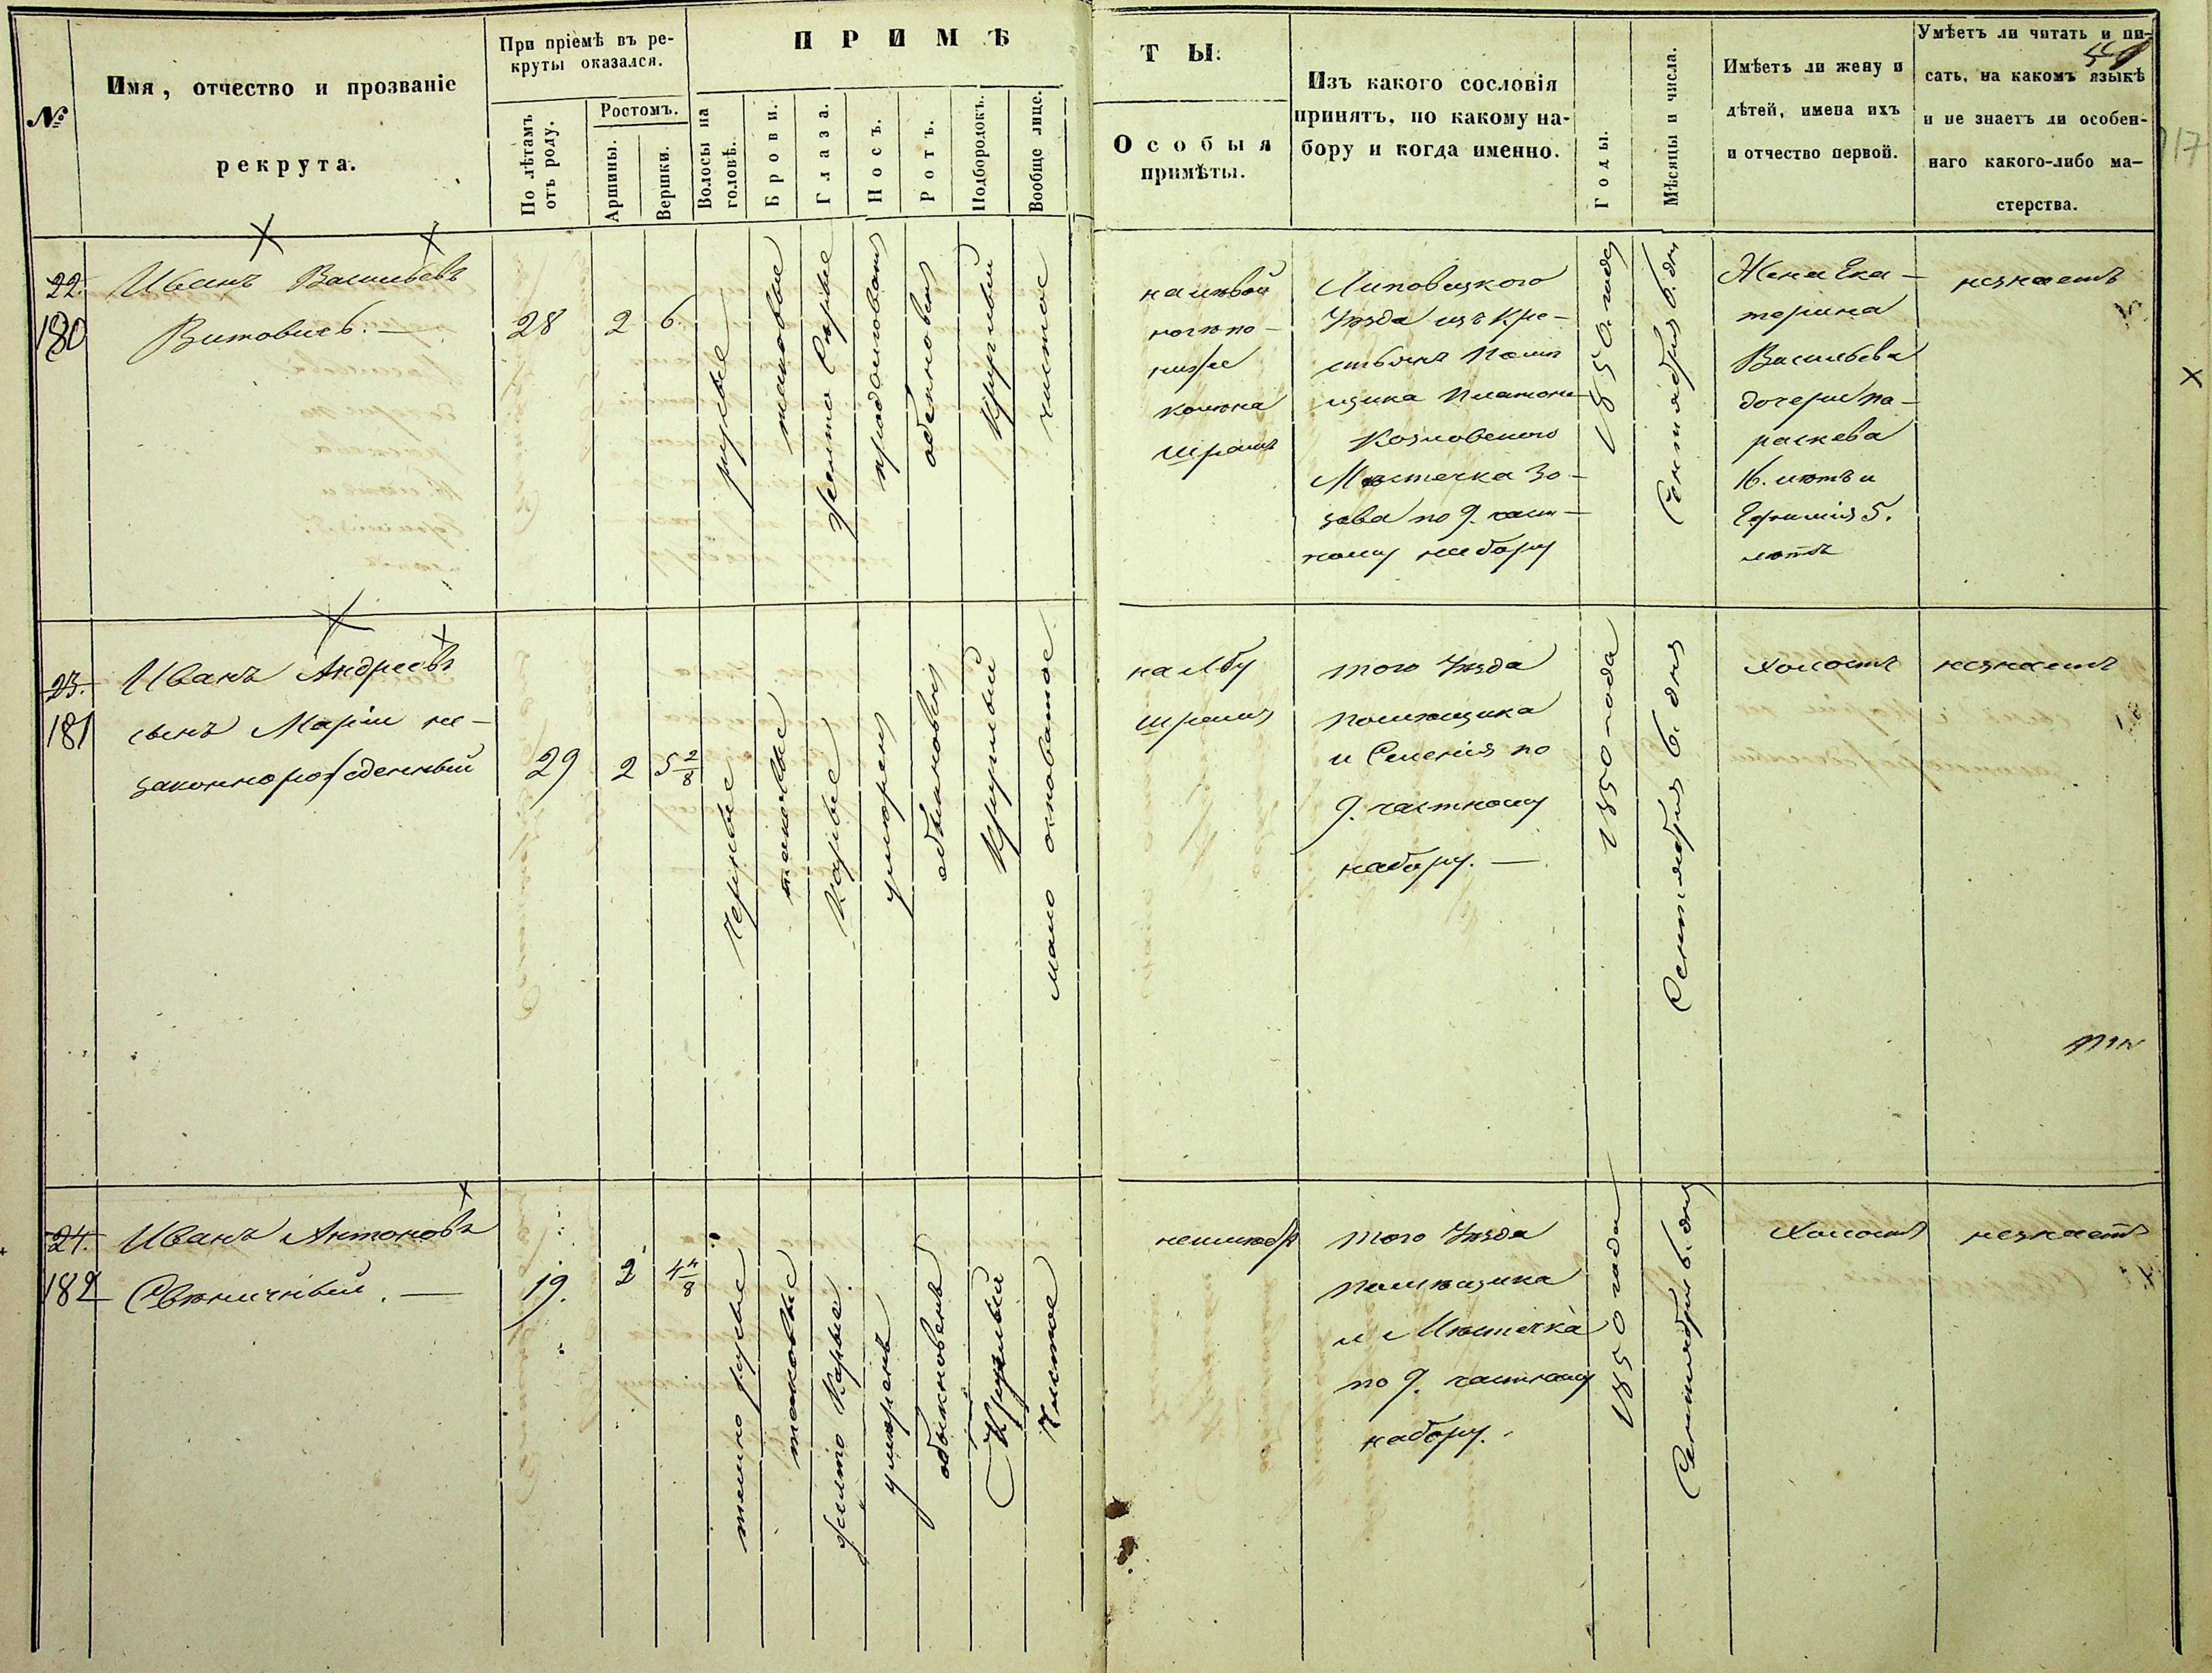 №
Имя, отчество и прозваніе
рекрута.
При пріемѣ въ ре-
круты оказался.
По лѣтамъ
отъ роду.
Ростомъ.
Аршины.
Вершки.
ПРИМѢ
Волосы на
головѣ.
Брови.
Глаза.
Носъ.
Ротъ.
Подбородокъ.
Вообще лице.
ТЫ.
Особыя
примѣты.
Изъ какого сословія
принятъ, по какому на-
бору и когда именно.
Годы.
Мѣсяцы и числа.
Имѣетъ ли жену и
дѣтей, имена ихъ
и отчество первой.
Умѣетъ ли читать и пи-
сать, на какомъ языкѣ
и не знаетъ ли особен-
наго какого-либо ма-
стерства.
117
22.
180
Иванъ Васильевъ
Витовичъ. —
28
2
6
русые
таковые
желто Карые
продолговат
обыкновен
Круглый
чистое
на лѣвой
ногѣ по-
ниже
колѣна
шрамъ
Липовецкого
Уѣзда изъ Кре-
стьянъ Помѣ
щика Платона
Козловского
Мѣстечка Зо-
зова по 9. част-
ному набору
1850. года
Сентября 6. дня
Жена Ека-
терина
Васильева
дочери Па-
раскева
16. лѣтъ и
Ефимія 5.
лѣтъ
незнаетъ
23.
181
Иванъ Андреевъ
сынъ Маріи не-
законнорожденный
29
2
5 2/8
Черные
таковые
Карые
умѣрен
обыкновен
Круглый
мало осповатое
на лбу
шрамъ
того Уѣзда
помѣщика
и Селенія по
9. частному
набору. —
1850 года
Сентября 6. дня
Холостъ
незнаетъ
24.
182
Иванъ Антоновъ
Свѣничный. —
19.
2
4 4/8
темно русые
таковые
желто Карые
умѣренъ
обыкновенъ
Круглый
Чистое
неимѣетъ
того Уѣзда
помѣщика
и Мѣстечка
по 9. частному
набору.
1850 года
Сентября 6. дня
Холостъ
незнаетъ